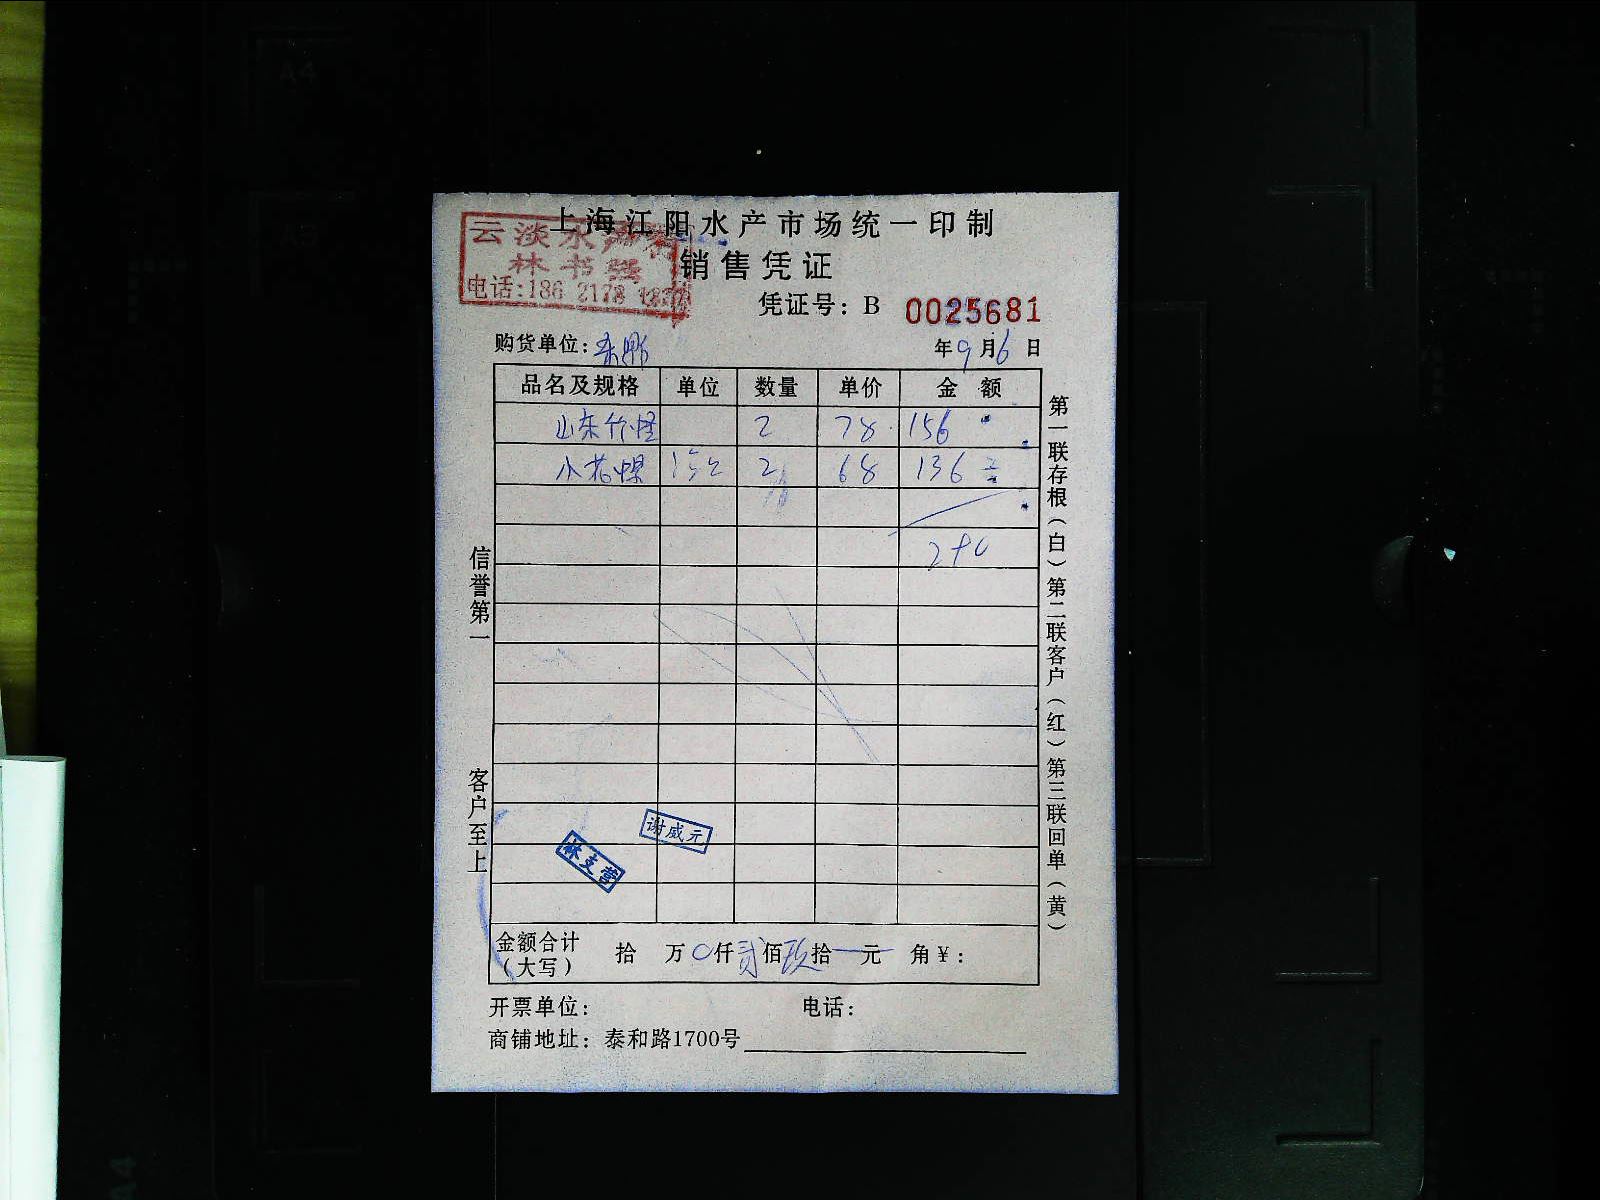 上海江阳水产市场统一印制
云淡水产
销售凭证
林书强
电话:186 2178
凭证号：B 0025681
购货单位：
年9月6日
品名及规格 单位 数量 单价 金额
山东竹蛏 2 78 156
小花 2 68 136
290
信誉第一
客户至上
第一联存根（白）第二联客户（红）第三联回单（黄）
谢威元
林支营
金额合计（大写） 拾 万0仟贰佰玖拾一元 角¥：
开票单位： 电话：
商铺地址：泰和路1700号